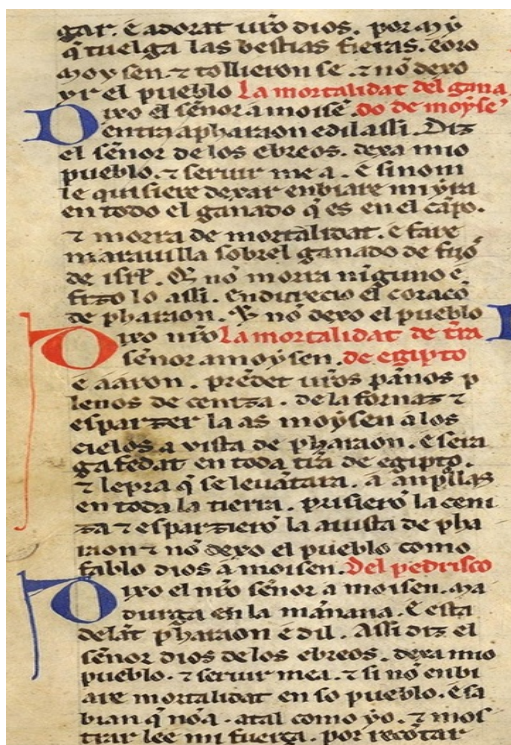 gar. E adorat uro dios. por my
q tuelga las bestias fieras. Eoro
moysen. ⁊ tollieron se. ⁊ no dexo
yr el pueblo La mortalidat del gana
Dixo el señor a moise. do de moyse
entra a pharaon e dil assi. Diz
el señor de los ebreos. dexa mio
pueblo. ⁊ seruir me a. E si non
le quisiere dexar enbiare mi yra
en todo el ganado q es en el capo.
⁊ morra de mortalidat. e fare
marauilla sobrel ganado de fijo
de isrl. Q no morra niguno e
fizo lo assi. Endurecio el coraço
de pharaon. E no dexo el pueblo
Dixo nro La mortalidat de tra
señor a moysen. de egipto
e aaron. predet uros panos p
lenos de ceniza. de la fornaz ⁊
esparzer la as moysen a los
cielos a uista de pharaon. E sera
gafedat en toda tira de egipto.
⁊ lepra q se leuatara. a anpllas
en toda la tierra. prisiero la ceni
za ⁊ esparziero la auista de pha
raon ⁊ no dexo el pueblo como
fablo dios a moisen. Del pedrisco
Dixo el nro señor a moisen. ma
durga en la manana. E esta
delat pharaon e dil. Assi diz el
señor dios de los ebreos. dexa mio
pueblo. ⁊ seruir mea. ⁊ si no enbi
are mortalidat en so pueblo. E sa
bian q no a. atal como yo. ⁊ mos
trar lee mi fuerça. por recotar